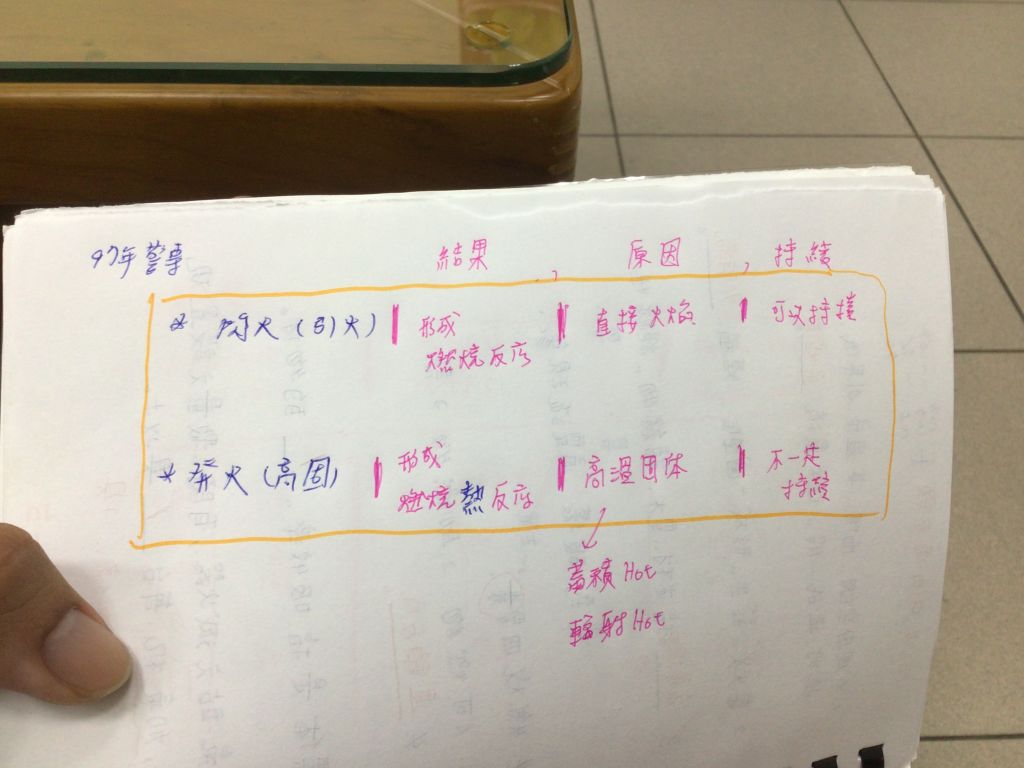 97年警專
結果 , 原因 , 持續
* 閃火(引火) | 形成 | 直接火焰 | 可以持續
燃燒反应
* 發火(高固) | 形成 | 高溫固体 | 不一定
燃燒熱反应 持續
蓄積Hot
輻射Hot